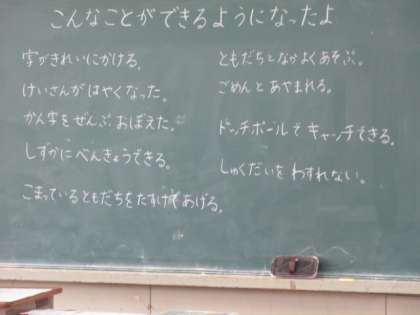 こんなことができるようになったよ
字がきれいにかける。
けいさんがはやくなった。
かん字をぜんぶおぼえた。
しずかにべんきょうできる。
こまっているともだちをたすけてあげる。
ともだちとなかよくあそぶ。
ごめんとあやまれる。
ドッチボールでキャッチできる。
しゅくだいをわすれない。